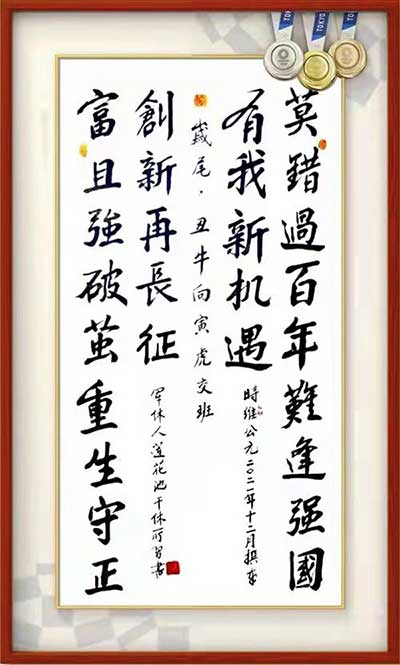 TOKYO
TOKYO
莫錯過百年難逢强國
有我新机遇
時維公元二〇二一年十二月撰
歲尾·丑牛向寅虎交班
創新再長征
軍休人蓮花池干休所習書
富且強破茧重生守正